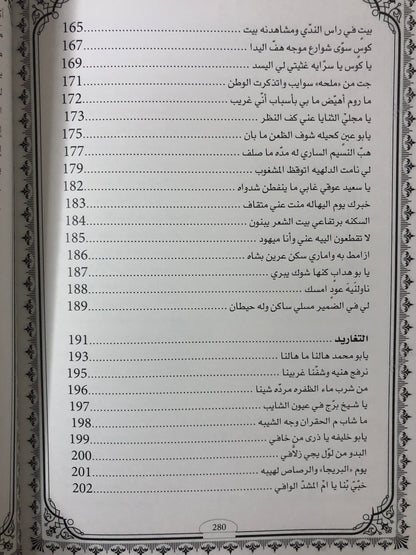 بيت في راس الندّي ومشاهدنه بيت ..... 165
كوسٍ سوّى شوارع موجه هفّ اليدا ..... 168
يا كوس يا سرّايه غثيتي لي اليسد ..... 169
جت من «ملحه» سوايب واتذكرت الوطن ..... 171
ما روم أهيّض ما بي بأسباب أنّي غريب ..... 172
يا مجليّ الثنايا عني كف النظر ..... 173
يابو عينٍ كحيله شوف الظعن ما بان ..... 175
هبّ النسيم الساري له مدّه ما صلف ..... 177
لي نامت الدلهيه اتوقظ المشغوب ..... 179
يا سعيد عوقي غابي ما ينفطن شدواه ..... 182
خبرك يوم اليهاله منت عني متقاف ..... 183
السكنه برتفاعي بيت الشعر بينون ..... 184
لا تقطعون اليبه عني وأنا ميهود ..... 185
ازامط به واماري سكن عرين بشاه ..... 186
يا بو هدابٍ كنها شوك يبري ..... 187
ناولنيَهَ عودٍ امسك ..... 188
لي في الضمير مسلي ساكن وله حيطان ..... 189
التغاريد ..... 191
يابو محمد هالنا ما هالنا ..... 193
نرفج هنيه وشفّنا غربينا ..... 195
من شرب ماء الظفره مردّه شينا ..... 196
يا شيخ برّج في عيون الشايب ..... 197
ما شاب م الحقران وجه الشيبه ..... 198
يابو خليفه يا ذرى من خافي ..... 199
البدو من لوّل يجي زلّافي ..... 200
يوم «البريجا» والرصاص لهيبه ..... 201
خبّي بْنا يا امْ المشدّ الوافي ..... 202
280